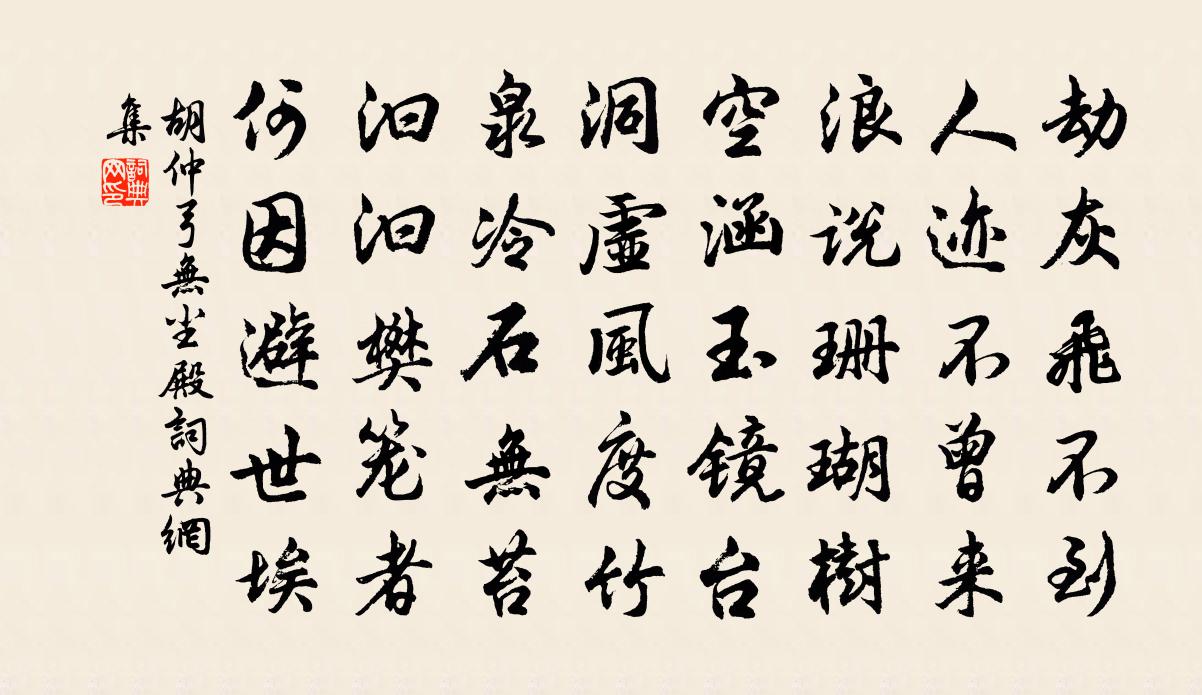 劫灰飛不到
人迹不曾来
浪説珊瑚樹
空涵玉镜台
洞虛風度竹
泉冷石無苔
汩汩樊笼者
何因避世埃
胡仲弓無尘殿詞典網
集
詞典網印